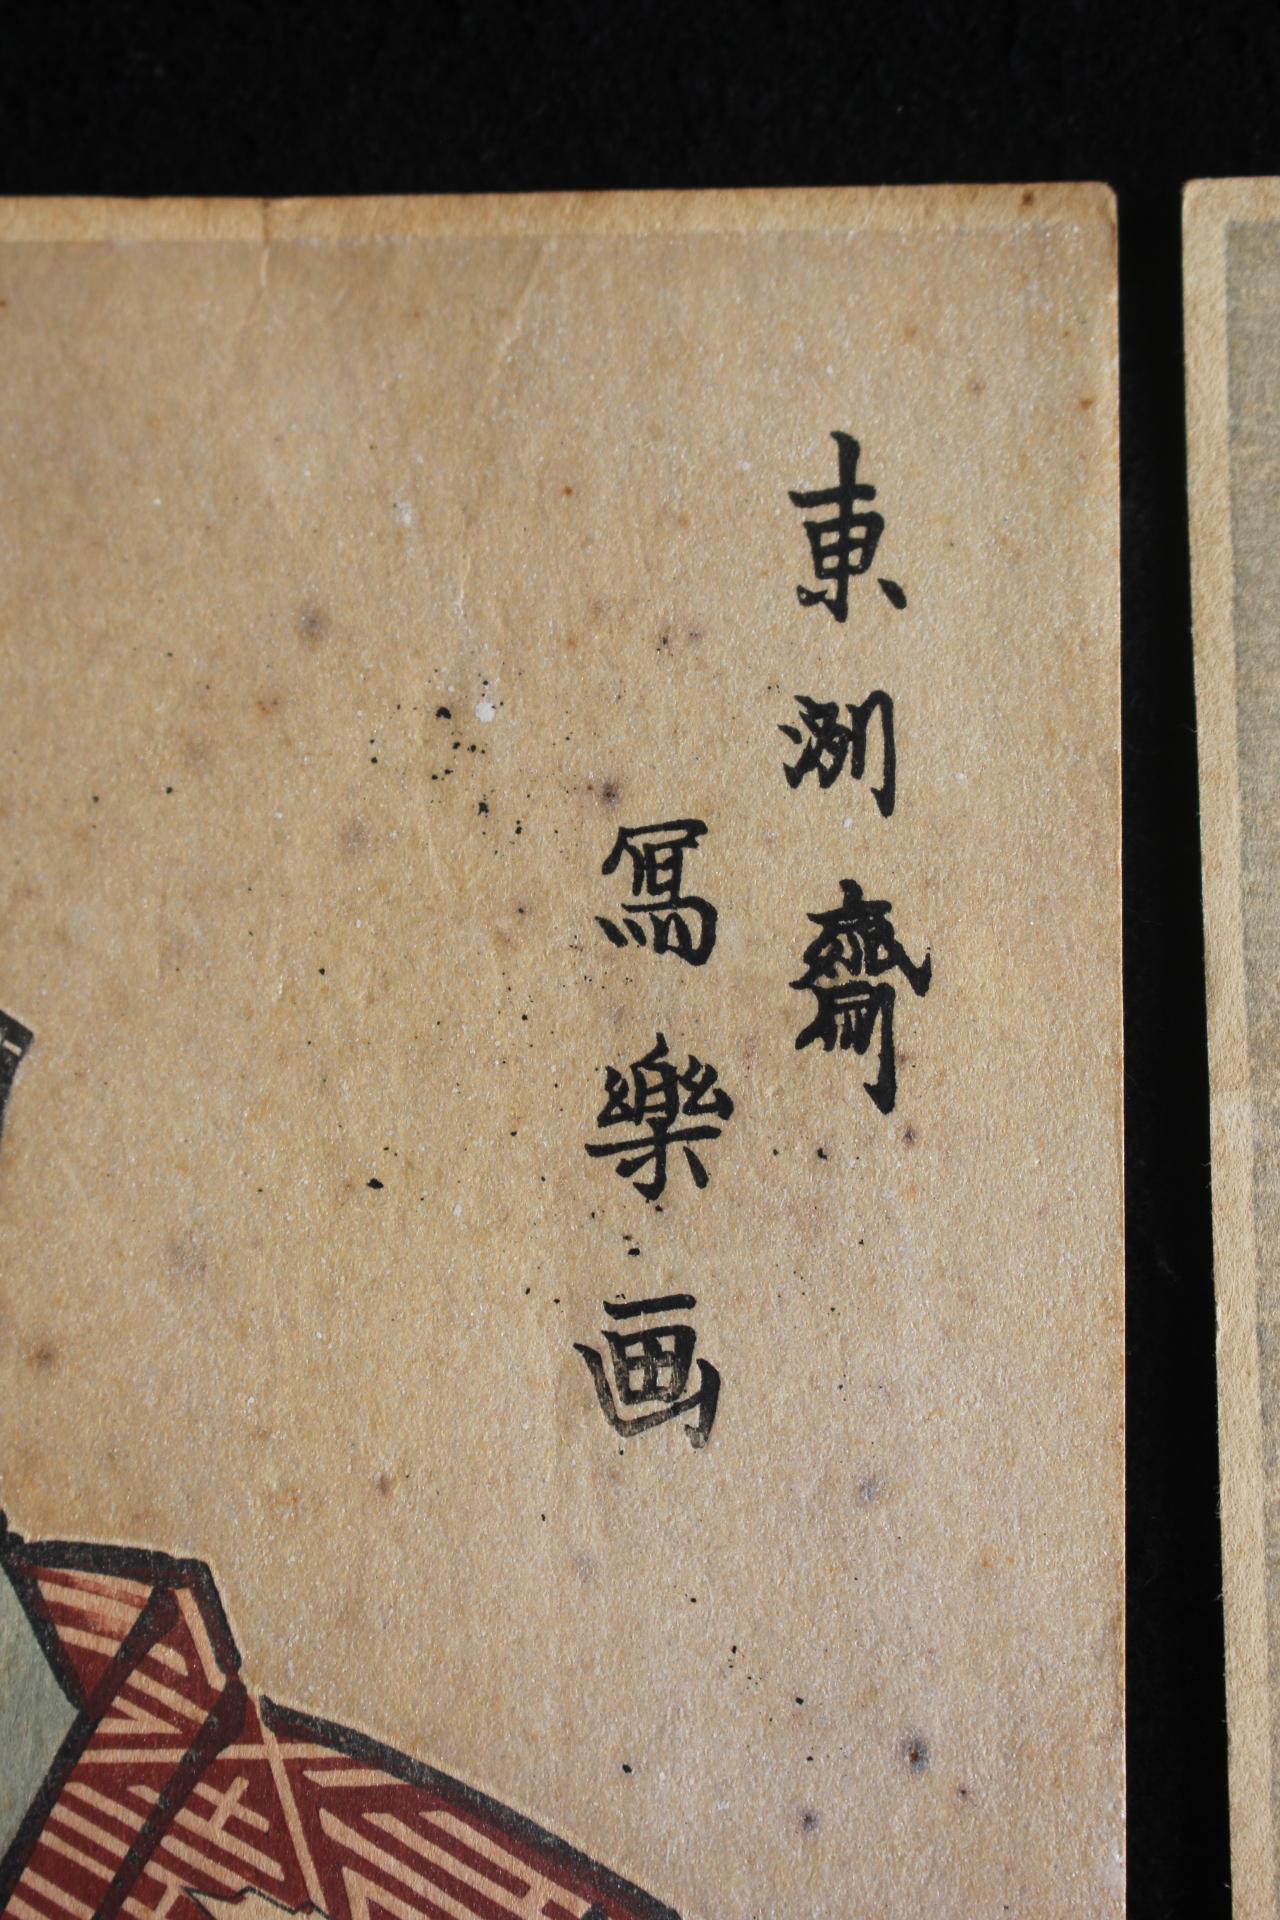 東洲齋
寫樂画